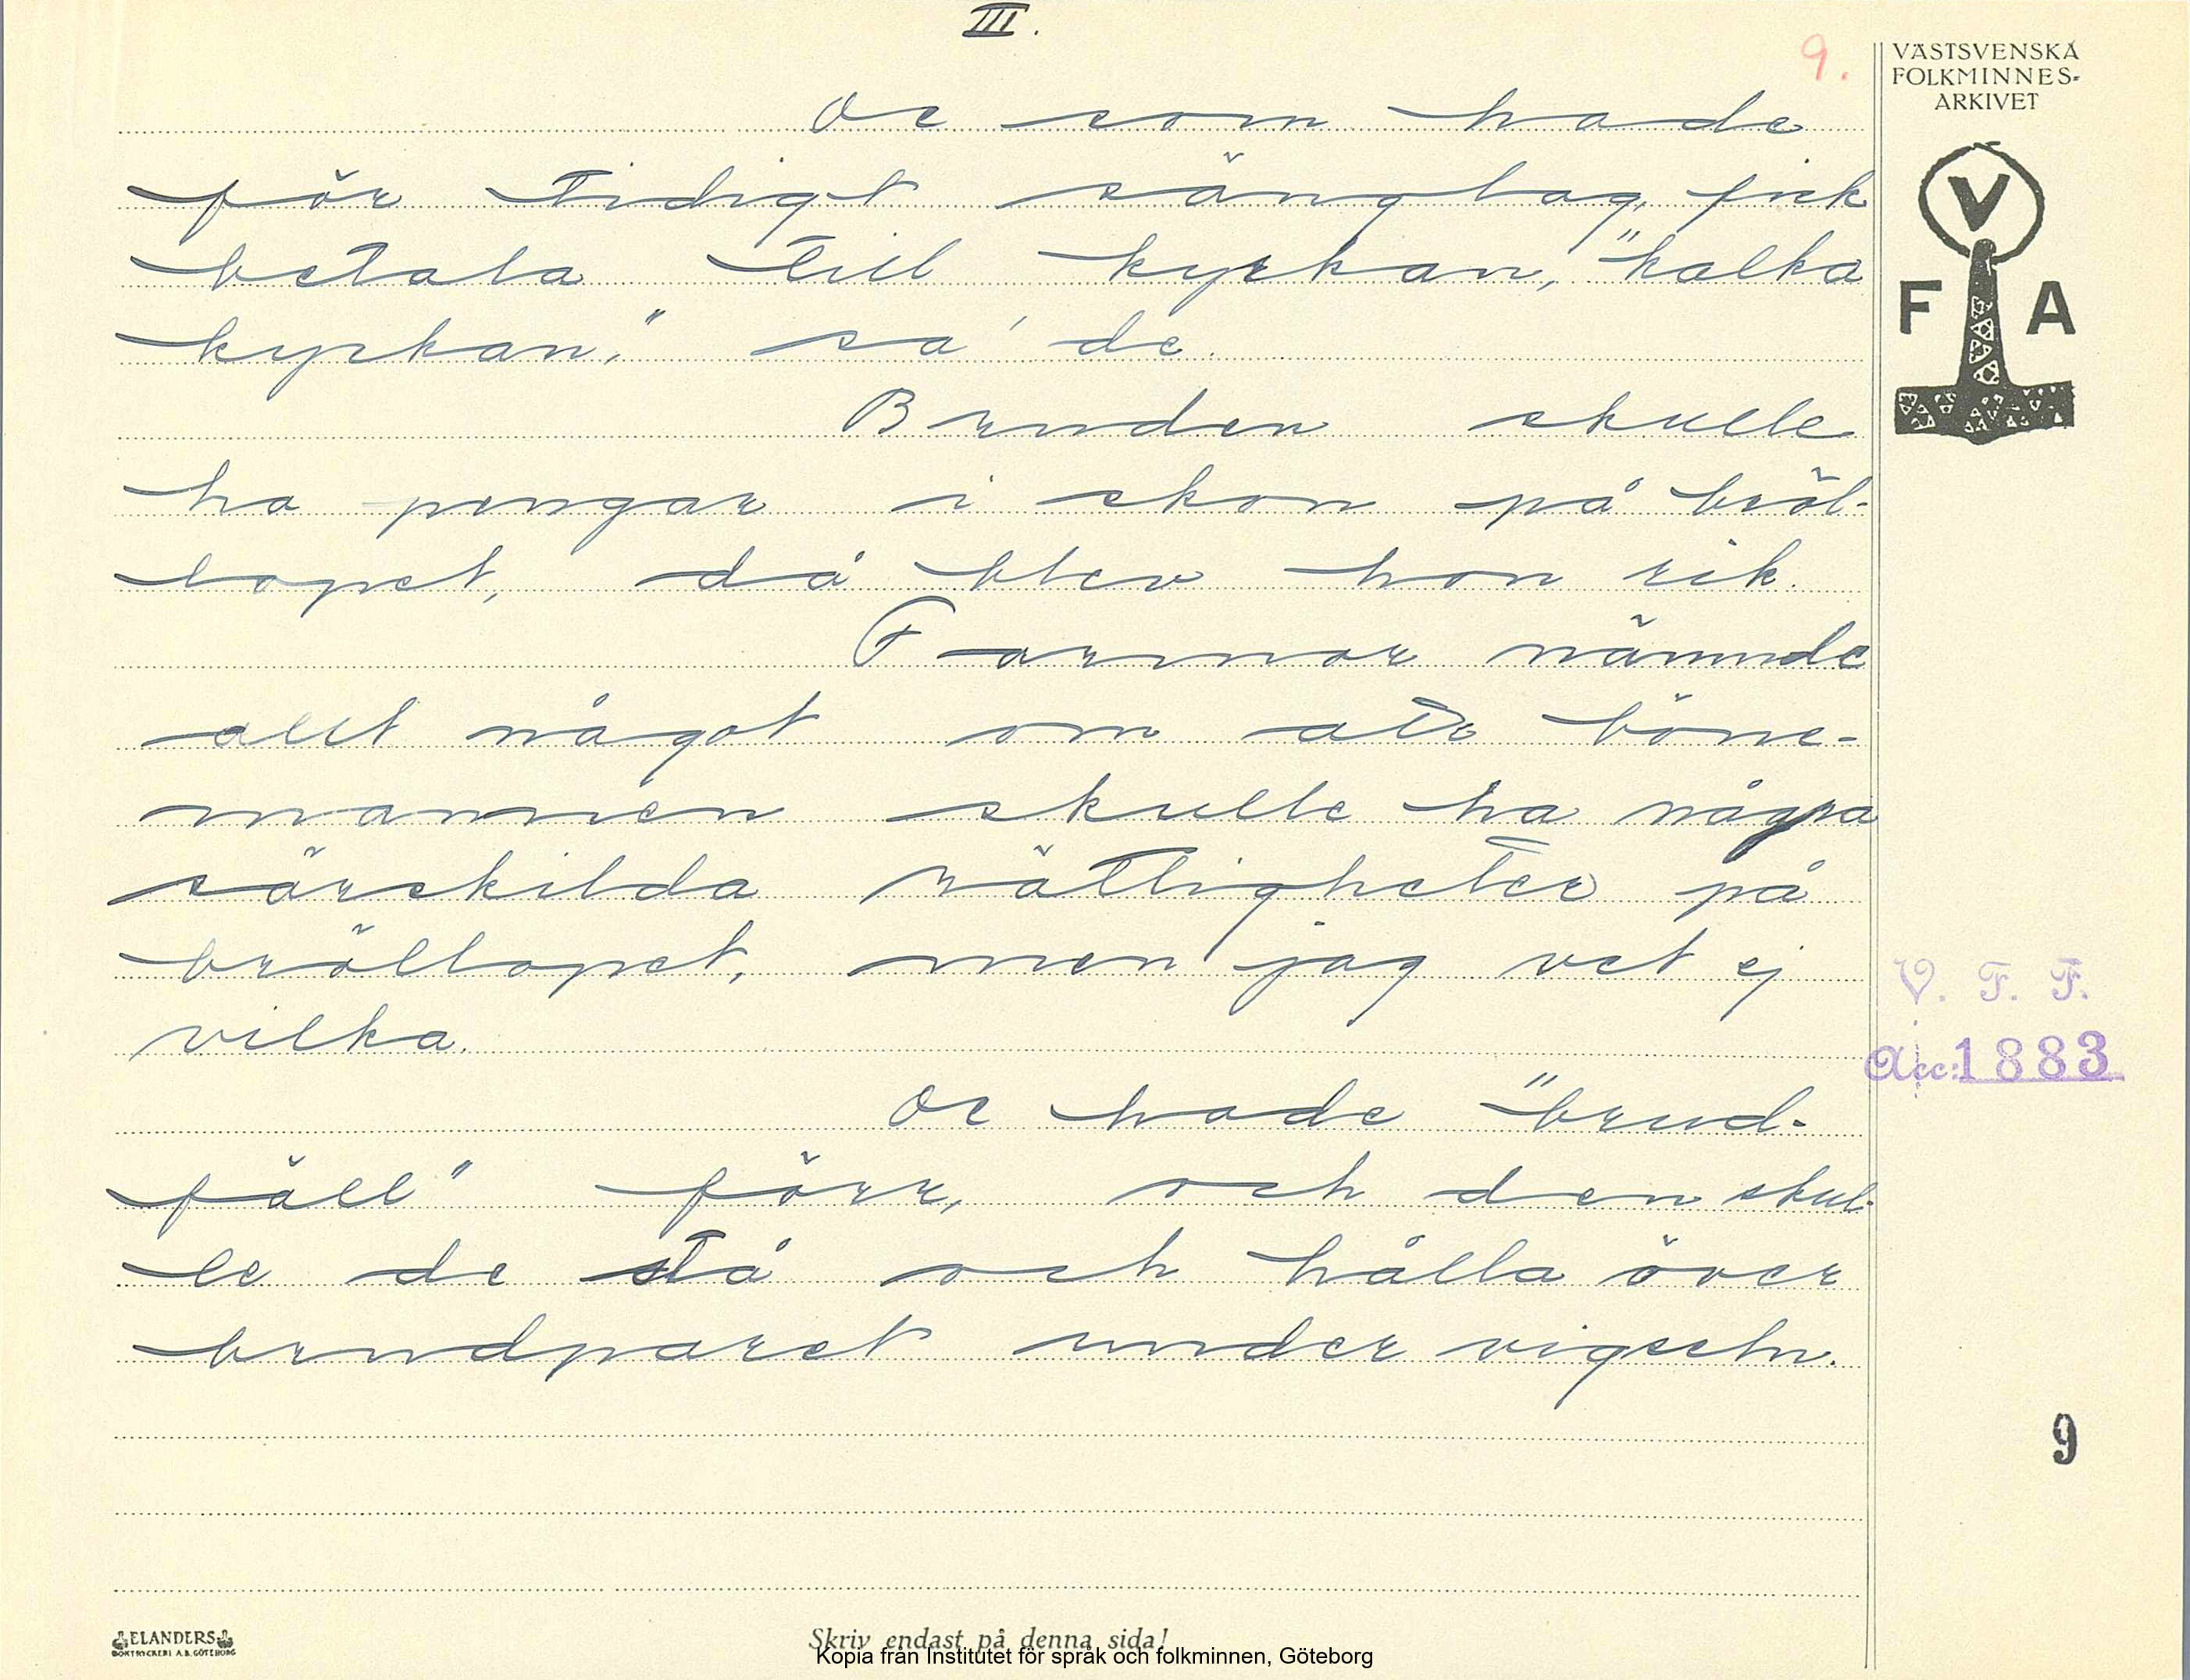 III.
9.
VÄSTSVENSKA
FOLKMINNES-
ARKIVET
De som hade
för tidigt sänglag, fick
betala till kyrkan, "kalka
kyrkan," sa' de.
V
F A
Bruden skulle
ha pengar i skon på bröl-
lopet, då blev hon rik.
Farmor nämnde
allt något om att böne-
mannen skulle ha några
särskilda rättigheter på
bröllopet, men jag vet ej
vilka.
V. F. F.
Acc: 1883
De hade "brud-
päll" förr, och den skul-
le de stå och hålla över
brudparet under vigseln.
9
ELANDERS
BOKTRYCKERI A.B. GÖTEBORG
Skriv endast på denna sida!
Kopia från Institutet för språk och folkminnen, Göteborg